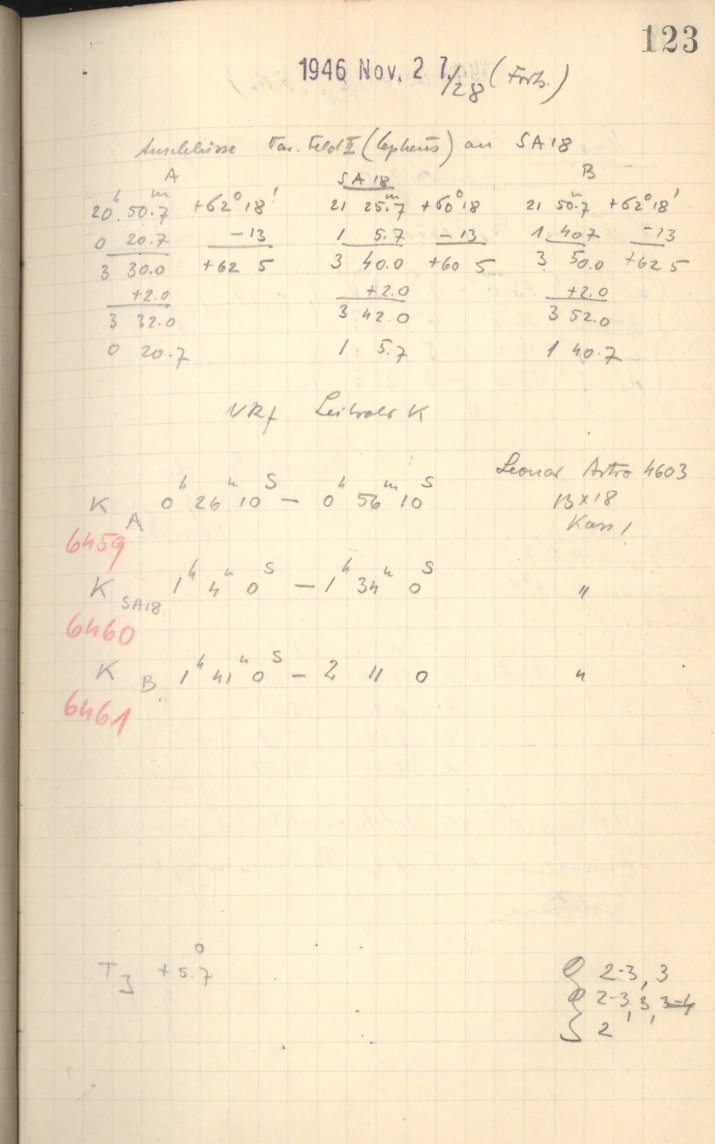 123
1946 Nov. 27./28 (Forts.)
Anschlüsse Var. Feld II (Cepheus) an SA18
A SA 18 B
20h 50.7m +62° 18' 21 25.7m +60° 18 21 50.7m +62° 18'
0 20.7 -13 1 5.7 -13 1 40.7 -13
3 30.0 +62 5 3 40.0 +60 5 3 50.0 +62 5
+2.0 +2.0 +2.0
3 32.0 3 42.0 3 52.0
0 20.7 1 5.7 1 40.7
K
Astro 4603
K A 0h 26m 10s — 0h 56m 10s 13×18
6459 Kass 1
K SA18 1h 4m 0s — 1h 34m 0s "
6460
K B 1h 41m 0s — 2 11 0 "
6461
T3 +5.7° 2-3, 3
2-3, 3, 3-4
2